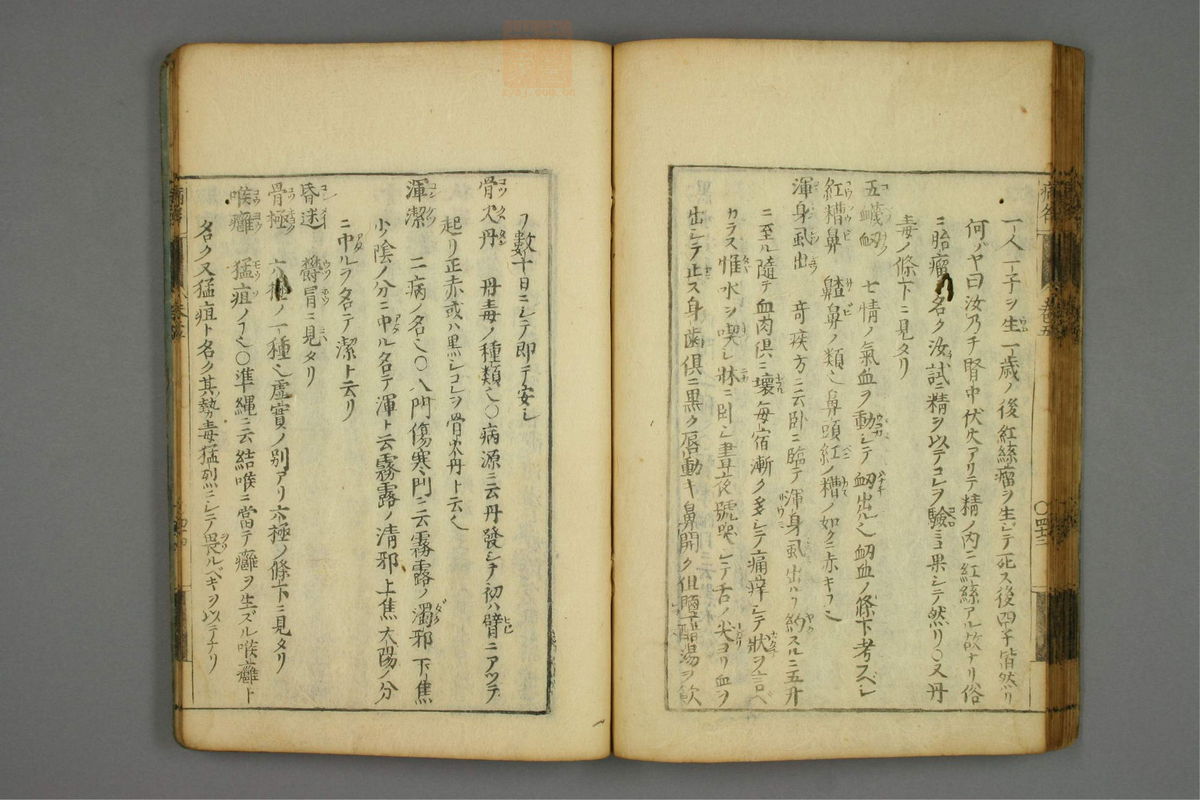 一人一子ヲ生一歳ノ後紅絲瘤ヲ生レテ死ス後四子皆然リ
何ゾヤ曰汝乃チ腎中伏火アリテ精ノ内ニ紅絲アル故ナリ俗
ニ瘤ト名ク汝試ニ精ヲ以テコレヲ驗ミヨ果レテ然リ〇又丹
毒ノ條下ニ見タリ
五衂 七情ノ氣血ヲ動レテ衂出ル也衂血ノ條下考スベレ
紅糟鼻 皶鼻ノ類也鼻頭紅ノ糟ノ如クニ赤キフ也
渾身虱出 奇疾方ニ云卧ニ臨テ渾身虱出ルフ約スルニ五升
ニ至ル隨テ血肉俱ニ壞毎宿漸ク多レテ痛痒レテ狀ヲ言ベ
カラス惟水ヲ喫レ牀ニ卧レ晝夜號哭レテ舌ノ尖ヨリ血ヲ
出レテ止ス身歯俱ニ黒ク唇動キ鼻開ク但鹽醋湯ヲ飲
フ數十日ニレテ即テ安レ
骨火丹 丹毒ノ種類也〇病源ニ云丹發レテ初ハ臂ニアツテ
起リ正赤或ハ黒レコレヲ骨火丹ト云也
渾潔 二病ノ名也〇八門傷寒門ニ云霧露ノ濁邪下リ焦
少陰ノ分ニ中ル名テ渾ト云霧露ノ清邪上焦太陽ノ分
ニ中ルヲ名テ潔ト云リ
昏迷 鬱冒ニ見タリ
骨極 六極ノ一種也虛實ノ別アリ六極ノ條下ニ見タリ
喉癰 猛疽ノフ也〇準縄ニ云結喉ニ當テ癰ヲ生ズル喉癰ト
名ク又猛疽ト名ク其勢毒猛烈ニレテ畏ルベキヲ以テナリ